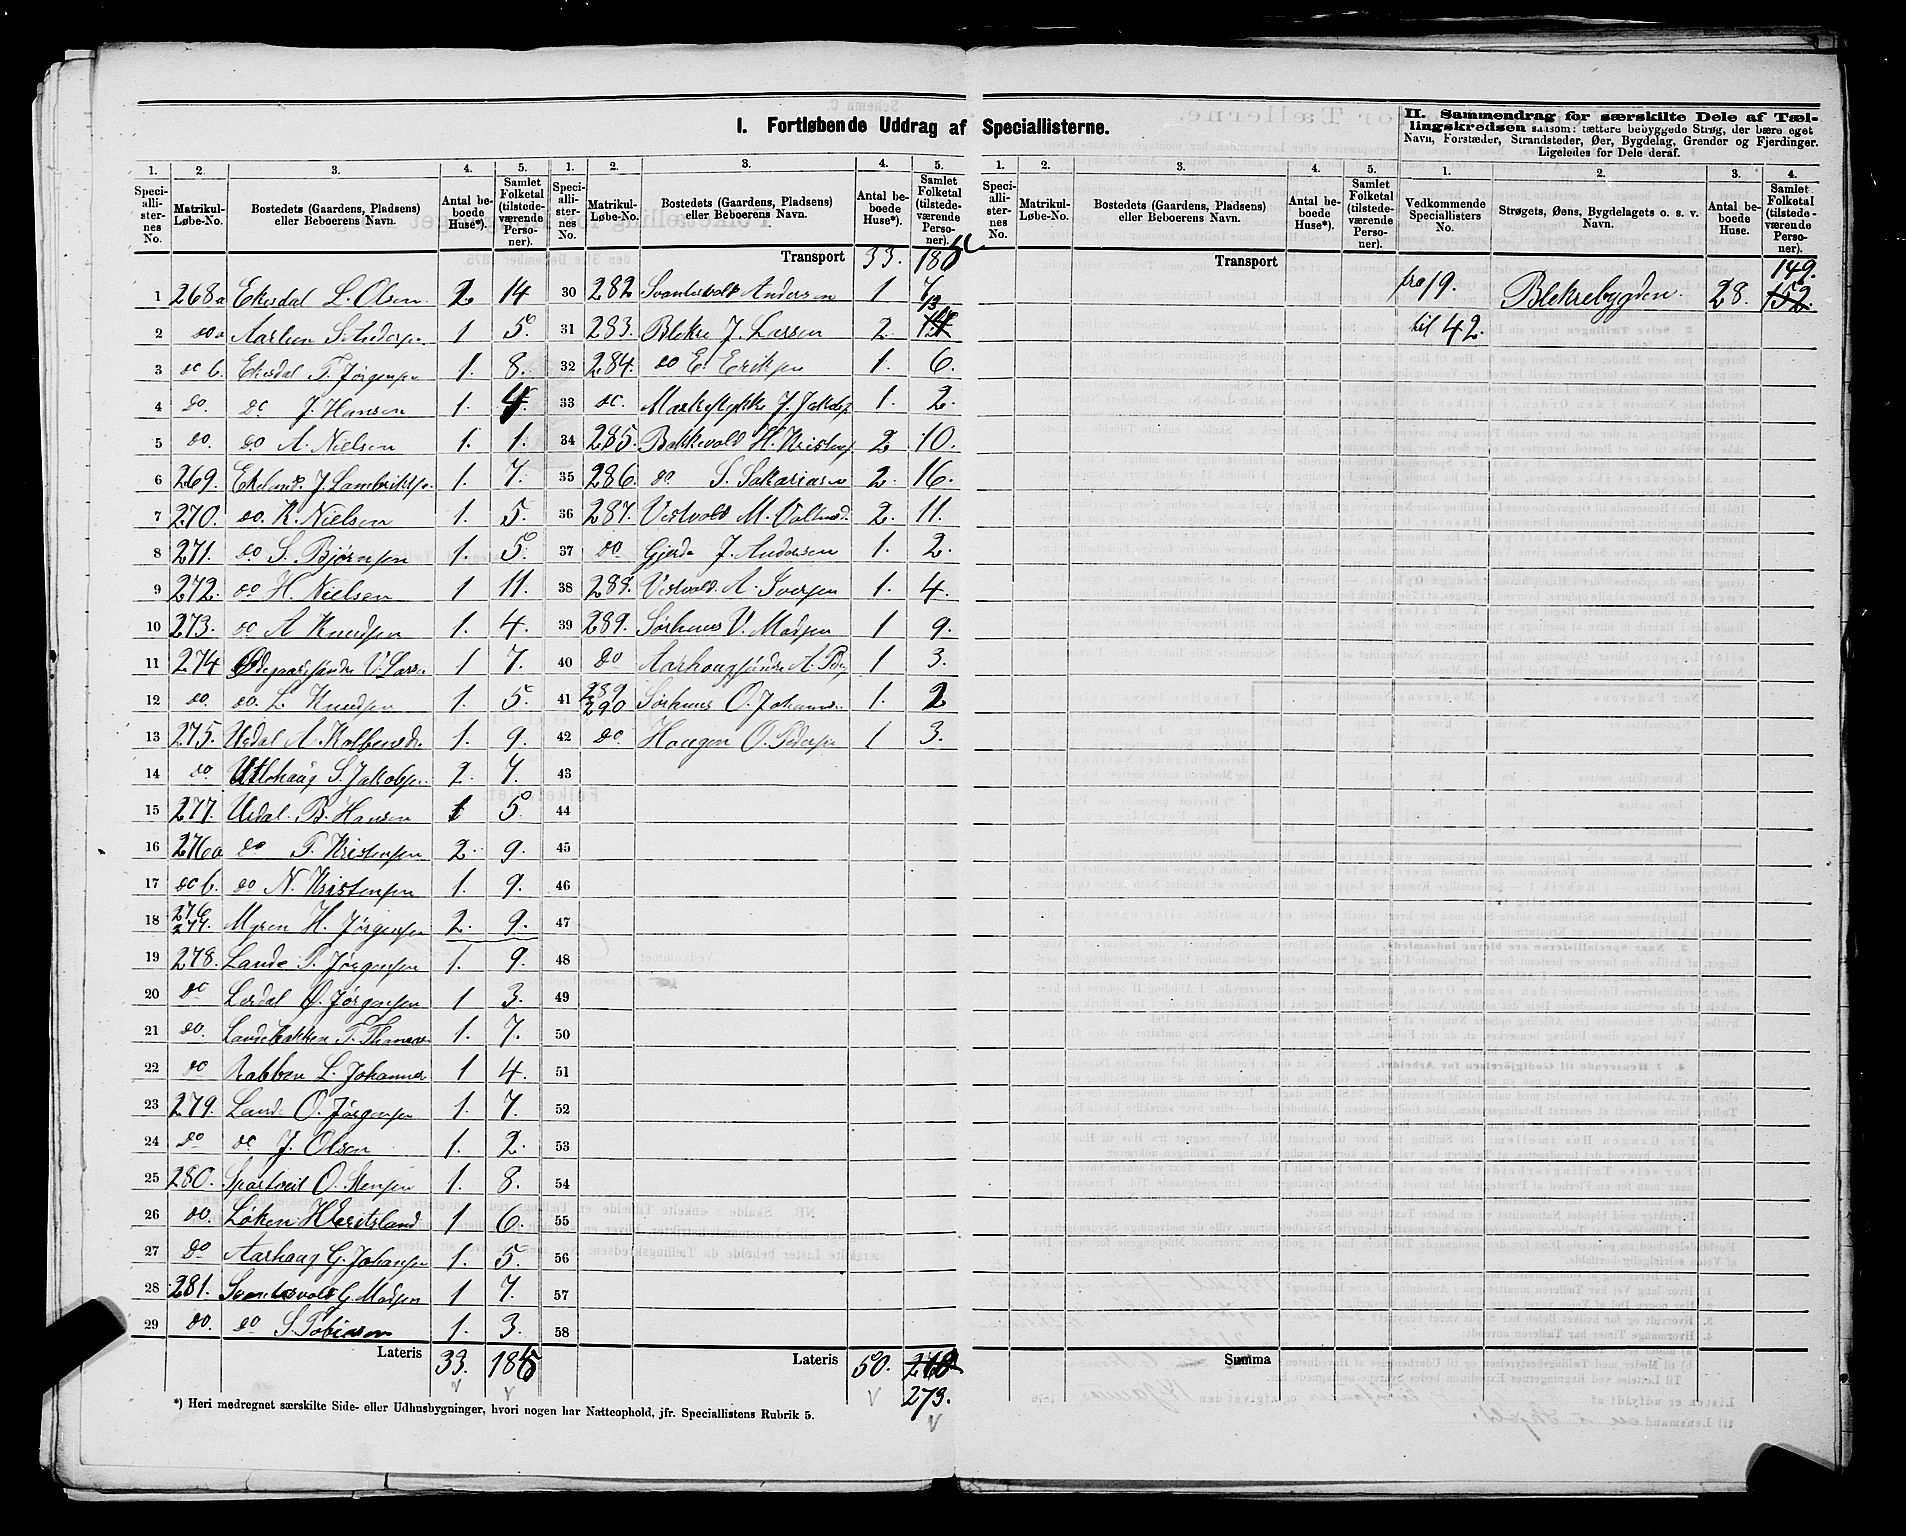 I. Fortløbende Uddrag af Speciallisterne.
II. Sammendrag for særskilte Dele af Tæl-
lingskredsen saasom: tættere bebyggede Strøg, der bære eget
Navn, Forstæder, Strandsteder, Øer, Bygdelag, Grender og Fjerdinger.
Ligeledes for Dele deraf.
1. 2. 3. 4. 5.
Speci-alli-ster-nes No. Matrikul-Løbe-No. Bostedets (Gaardens, Pladsens) eller Beboerens Navn. Antal be-boede Huse*). Samlet Folketal (tilstede-værende Perso-ner).
1 268a Ekesdal L. Olsen 2 14
2 do a Aarlien S. Andersen 1 5.
3 do b. Ekesdal T. Jørgensen 1. 8.
4 do. do J. Hansen 1. 4.
5 do. do A. Nielsen 1. 1.
6 269. Ekelund. J. Lambriktsen 1. 7.
7 270. do. K. Nielsen 1. 5.
8 271. do S. Bjørnsen 1. 5.
9 272. do H. Nielsen 1 11.
10 273. do A Knudsen 1. 4.
11 274 V. Larsen 1 7.
12 do. do. L. Knudsen 1. 5.
13 275. Uedal A. 1. 9.
14 do S. Jakobsen 2. 7.
15 277. Uedal. B. Hansen 1 5
16 276a do T. Kristensen 2. 9.
17 do b. do N. Kristensen 1. 9.
18 276 277. Myren H. Jørgensen 2. 9.
19 278. Lande T. Jørgensen 1. 9.
20 do Lerdal O. Jørgensen 1 3.
21 do. Landebakken T. 1. 7.
22 do Rabben L. Johannes 1 4.
23 279. Lande O. Jørgensen 1. 7.
24 do do J. Olsen 1. 2.
25 280. O. Stensen 1. 8.
26 do. Løken 1 6.
27 do Aarhaug G. Johansen 1. 5.
28 281. Svantesvold G. Madsen 1 7.
29 do. do S. Tobiasen 1. 3.
Lateris 33. 185
1. 2. 3. 4. 5.
Speci-alli-ster-nes No. Matrikul-Løbe-No. Bostedets (Gaardens, Pladsens) eller Beboerens Navn. Antal be-boede Huse*). Samlet Folketal (tilstede-værende Perso-ner).
Transport 33. 185
30 282 Svantesvold Andersen 1 7
31 283. Blekre J. Larsen 2. 13
32 284. do E. Eriksen 1. 6.
33 do. J. Jakobs 1. 2.
34 285. Bakkevold H. Kristens 2 10.
35 286. do S. Sakariasen 2. 16.
36 287. Vestvold M. 2. 11.
37 do Gjerde J. Andersen 1. 2.
38 288. Vestvold. A. Iversen 1. 4.
39 289. Sørhuus V. Madsen 1 9.
40 do A. 1 3.
41 289 290 Sørhuus O. Johanns 1. 2
42 do. Haugen O. Pedersen 1 3.
43
44
45
46
47
48
49
50
51
52
53
54
55
56
57
58
Lateris 50.
273.
*) Heri medregnet særskilte Side- eller Udhusbygninger, hvori nogen har Natteophold, jfr. Speciallistens Rubrik 5.
1. 2. 3. 4. 5.
Speci-alli-ster-nes No. Matrikul-Løbe-No. Bostedets (Gaardens, Pladsens) eller Beboerens Navn. Antal be-boede Huse*). Samlet Folketal (tilstede-værende Perso-ner).
Transport
Summa
1. 2. 3. 4.
Vedkommende Speciallisters No. Strøgets, Øens, Bygdelagets o. s. v. Navn. Antal be-boede Huse. Samlet Folketal (tilstede-værende Personer).
149.
fra 19. Blekrebygden. 28. 152.
til 42.